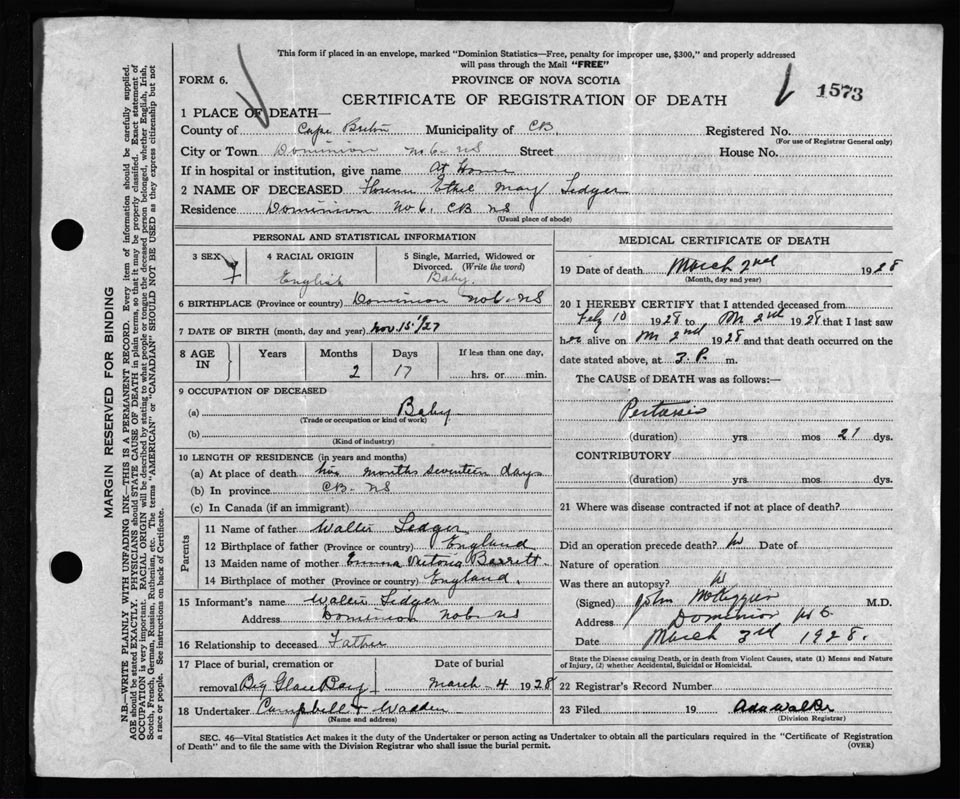 This form if placed in an envelope, marked "Dominion Statistics—Free, penalty for improper use, $300," and properly addressed
will pass through the Mail "FREE"
FORM 6. PROVINCE OF NOVA SCOTIA
CERTIFICATE OF REGISTRATION OF DEATH 1573
1 PLACE OF DEATH—
County of Cape Breton Municipality of CB. Registered No.
(For use of Registrar General only)
City or Town Dominion No 6 - NS Street House No.
If in hospital or institution, give name At Home
2 NAME OF DECEASED Florence Ethel May Ledger
Residence Dominion No 6. CB NS
(Usual place of abode)
PERSONAL AND STATISTICAL INFORMATION
3 SEX F 4 RACIAL ORIGIN English 5 Single, Married, Widowed or Divorced. (Write the word) Baby
6 BIRTHPLACE (Province or country) Dominion No 6 - NS
7 DATE OF BIRTH (month, day and year) Nov 15 1/27
8 AGE IN Years Months Days If less than one day,
2 17 hrs. or min.
9 OCCUPATION OF DECEASED
(a) Baby
(Trade or occupation or kind of work)
(b)
(Kind of industry)
10 LENGTH OF RESIDENCE (in years and months)
(a) At place of death two months seventeen days
(b) In province CB - NS
(c) In Canada (if an immigrant)
Parents
11 Name of father Walter Ledger
12 Birthplace of father (Province or country) England
13 Maiden name of mother Emma Victoria Barrett.
14 Birthplace of mother (Province or country) England.
15 Informant's name Walter Ledger
Address Dominion No 6 - NS
16 Relationship to deceased Father
17 Place of burial, cremation or Date of burial
removal Big Glace Bay March - 4 1928
18 Undertaker Campbell & Wadden
(Name and address)
MEDICAL CERTIFICATE OF DEATH
19 Date of death March 2nd 1928
(Month, day and year)
20 I HEREBY CERTIFY that I attended deceased from
Feby 10 1928 to M 2nd 1928 that I last saw
her alive on M 2nd 1928 and that death occurred on the
date stated above, at 3. P. m.
The CAUSE of DEATH was as follows:—
(duration) yrs mos 21 dys.
CONTRIBUTORY
(duration) yrs. mos. dys.
21 Where was disease contracted if not at place of death?
Did an operation precede death? Date of
Nature of operation
Was there an autopsy?
(Signed) John M.D.
Address Dominion
Date March 3rd 1928.
State the Disease causing Death, or in death from Violent Causes, state (1) Means and Nature
of Injury, (2) whether Accidental, Suicidal or Homicidal.
22 Registrar's Record Number
23 Filed 19 Ada Walker
(Division Registrar)
SEC. 46—Vital Statistics Act makes it the duty of the Undertaker or person acting as Undertaker to obtain all the particulars required in the "Certificate of Registration
of Death" and to file the same with the Division Registrar who shall issue the burial permit. (OVER)
MARGIN RESERVED FOR BINDING
N.B.—WRITE PLAINLY WITH UNFADING INK—THIS IS A PERMANENT RECORD. Every item of information should be carefully supplied.
AGE should be stated EXACTLY. PHYSICIANS should STATE CAUSE OF DEATH in plain terms, so that it may be properly classified. Exact statement of
OCCUPATION is very important. RACIAL ORIGIN will be described by stating to what people or tongue the deceased person belonged, whether English, Irish,
Scotch, French, German, Russian, Ruthenian, etc. The terms "AMERICAN" or "CANADIAN" SHOULD NOT BE USED as they express citizenship but not
a race or people. See instructions on back of Certificate.